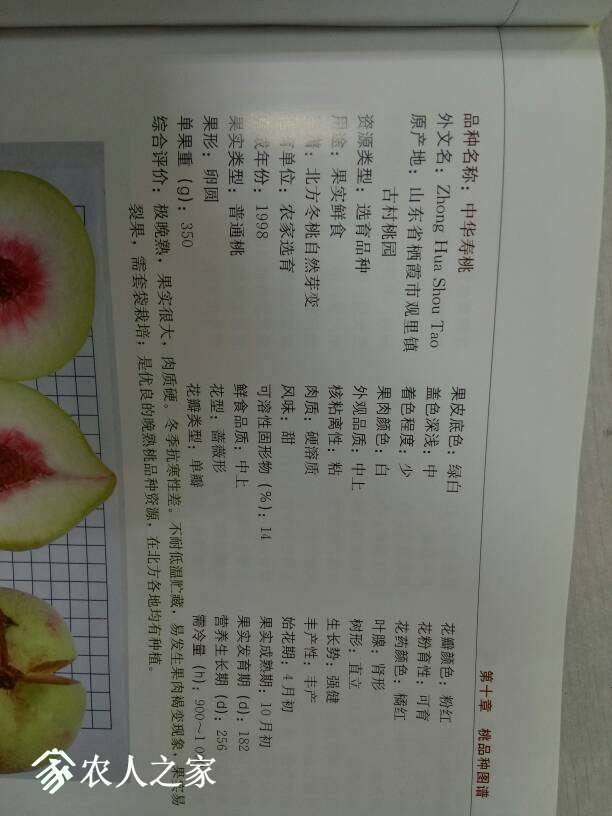 第十章 桃品种图谱
品种名称：中华寿桃
外文名：Zhong Hua Shou Tao
原产地：山东省栖霞市观里镇
古村桃园
资源类型：选育品种
用途：果实鲜食
：北方冬桃自然芽变
单位：农家选育
成年份：1998
果实类型：普通桃
果形：卵圆
单果重（g）：350
果皮底色：绿白
盖色深浅：中
着色程度：少
果肉颜色：白
外观品质：中上
核粘离性：粘
肉质：硬溶质
风味：甜
可溶性固形物（%）：14
鲜食品质：中上
花型：蔷薇形
花瓣类型：单瓣
花瓣颜色：粉红
花粉育性：可育
花药颜色：橘红
叶腺：肾形
树形：直立
生长势：强健
丰产性：丰产
始花期：4月初
果实成熟期：10月初
果实发育期（d）：182
营养生长期（d）：256
需冷量（h）：900~1 0
综合评价：极晚熟，果实很大，肉质硬。冬季抗寒性差。不耐低温贮藏，易发生果肉褐变现象，果实易
裂果，需套袋栽培；是优良的晚熟桃品种资源，在北方各地均有种植。
农人之家